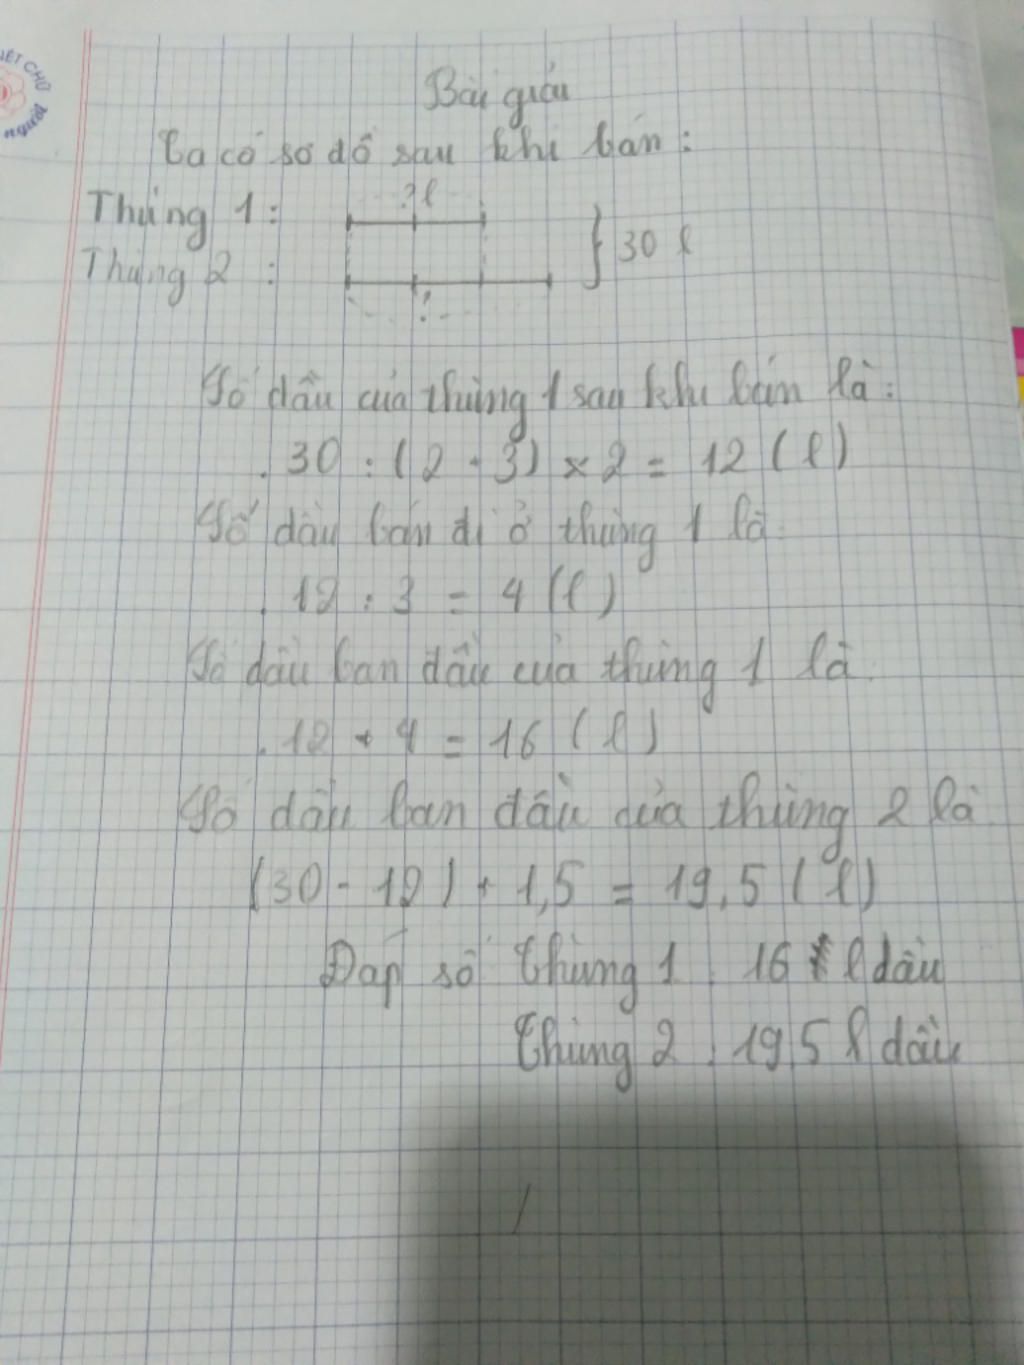 VIẾT CHỮ
người
Bài giải
Ta có sơ đồ sau khi bán:
?l
Thùng 1:
30 l
Thùng 2:
?
Số dầu của thùng 1 sau khi bán là:
30 : (2 + 3) x 2 = 12 (l)
Số dầu bán đi ở thùng 1 là:
12 : 3 = 4 (l)
Số dầu ban đầu của thùng 1 là:
12 + 4 = 16 (l)
Số dầu ban đầu của thùng 2 là
(30 - 12) + 1,5 = 19,5 (l)
Đáp số Thùng 1 : 16 l dầu
Thùng 2 : 19,5 l dầu